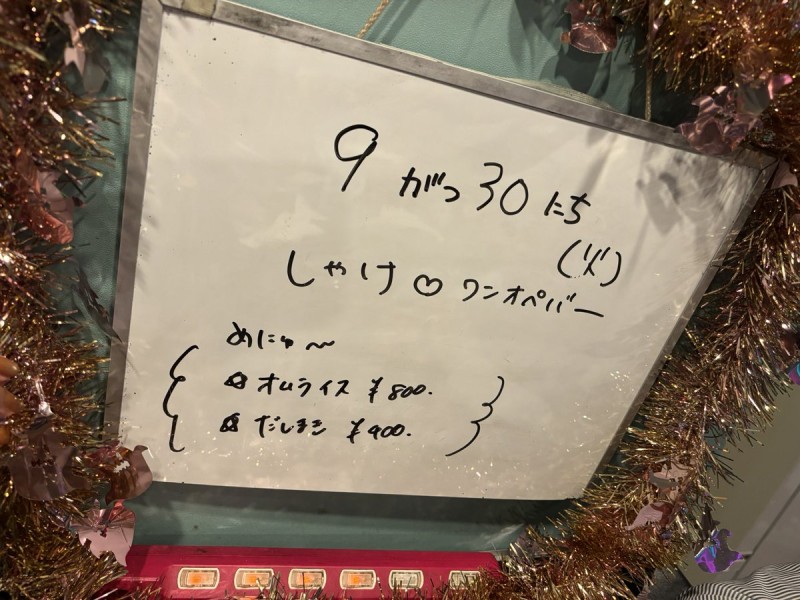 9がつ30にち
(火)
しゃけ♡ワンオペバー
めにゅ〜
☆オムライス ¥800.
☆だしまき ¥400.